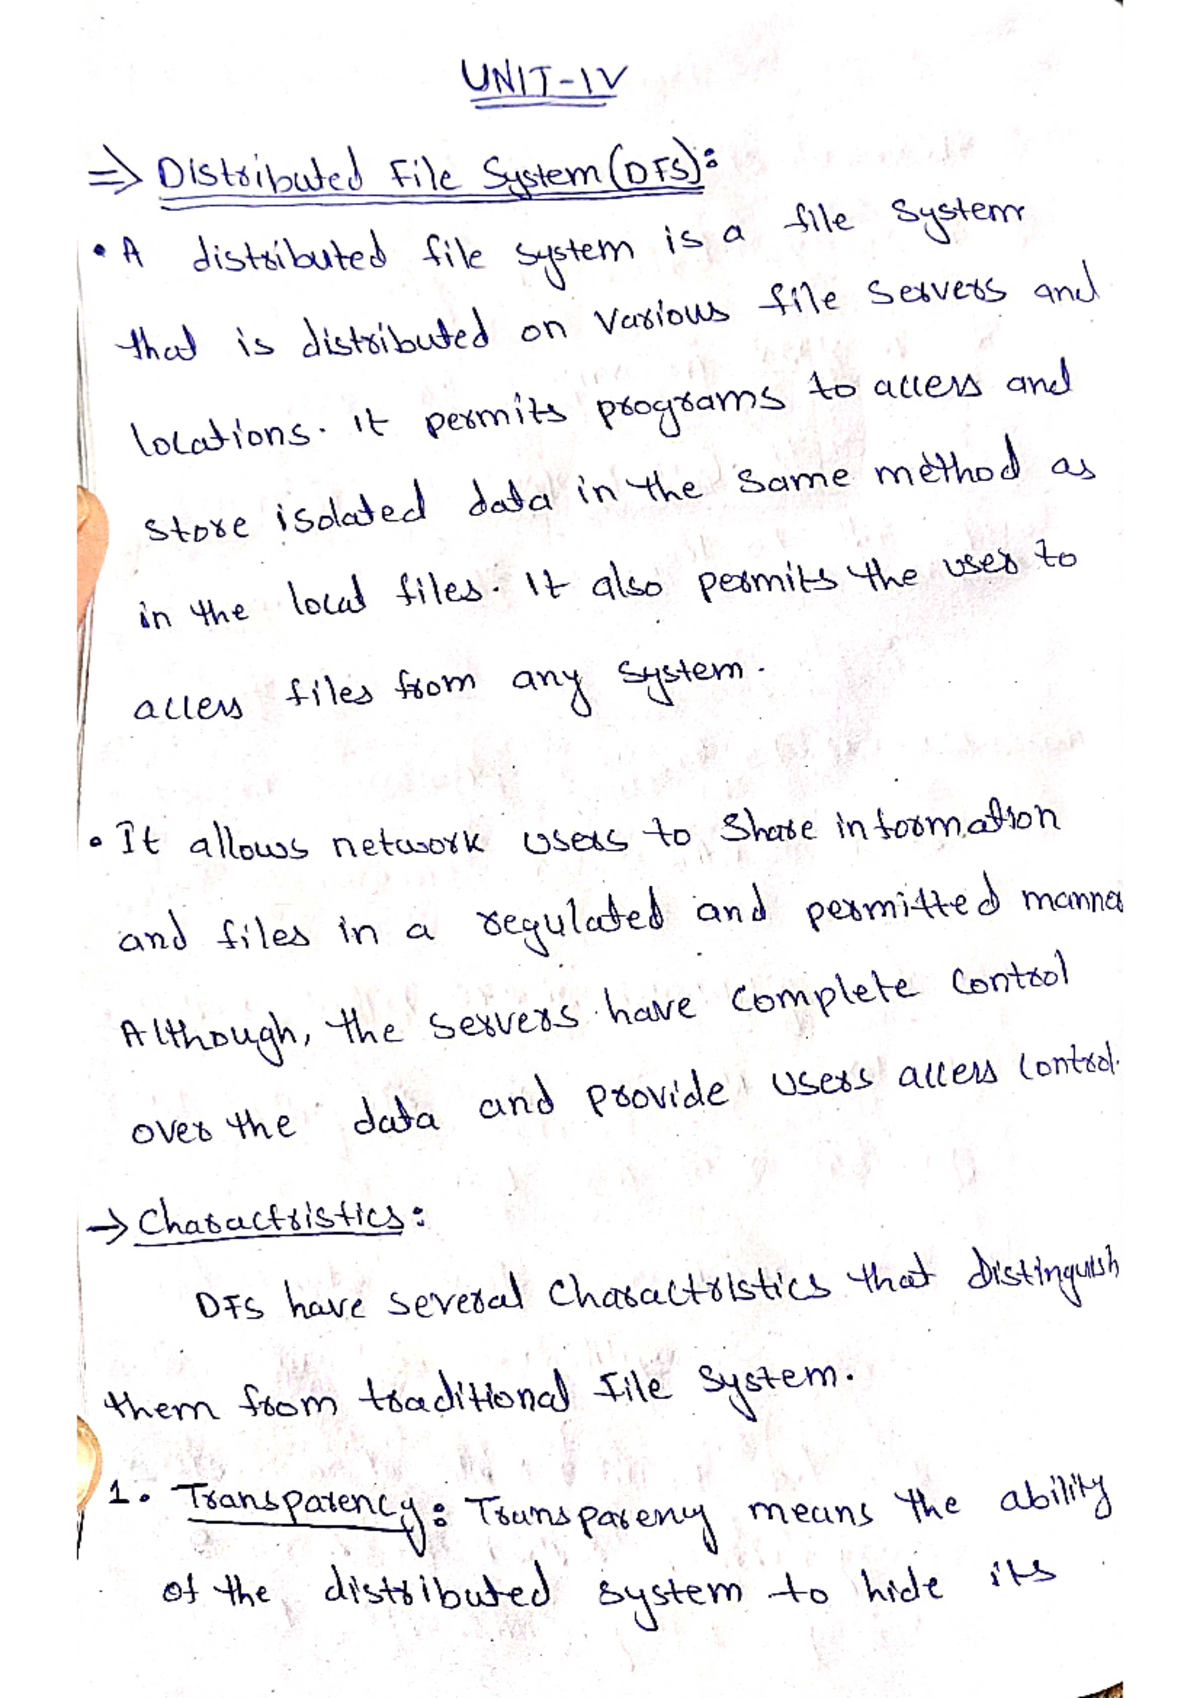 UNIT-IV
⇒ Distributed File System (DFS):
• A distributed file system is a file system
that is distributed on various file servers and
locations. It permits programs to access and
store isolated data in the same method as
in the local files. It also permits the user to
access files from any system.
• It allows network users to share information
and files in a regulated and permitted manner
Although, the servers have complete control
over the data and provide users access control.
→ Charactristics:
DFS have several Charactristics that distinguish
them from traditional File system.
1. Transparency: Transparency means the ability
of the distributed system to hide its